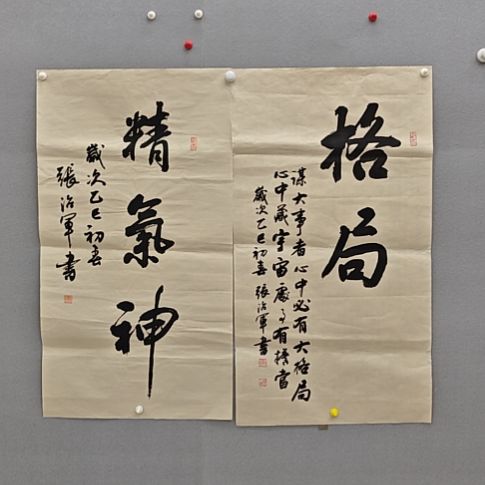 格局
谋大事者心中必有大格局
心中藏宇宙处事有担当
歲次乙巳初春 張治軍書
精氣神
歲次乙巳初春
張治軍書